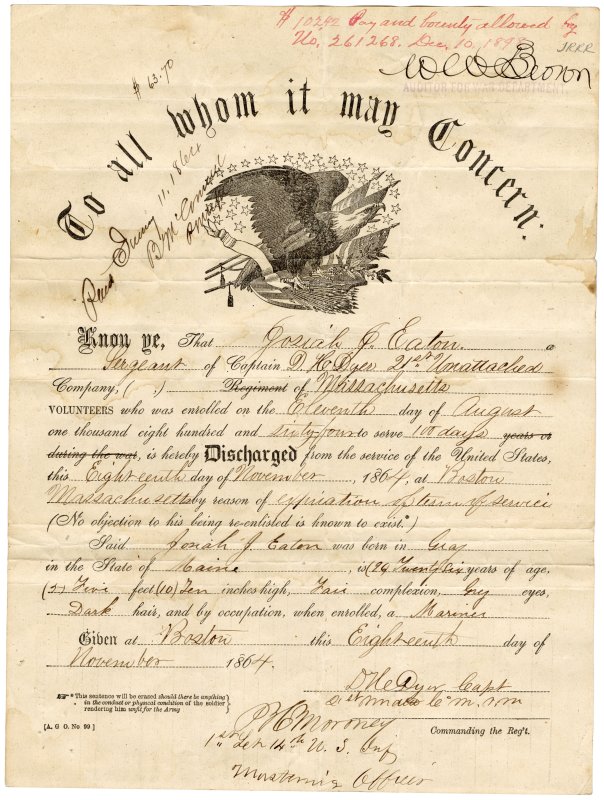 $102.42 Pay and bounty allowed by
No. 261268. Dec. 10, 1898
JRRR
W W Brown
AUDITOR FOR WAR DEPARTMENT.
$63.70
To all whom it may Concern:
Paid
11. 1864
Know ye, That Josiah J. Eaton. a
Sergeant of Captain D. H. Dyer 21st Unattached
Company, ( .) Regiment of Massachusetts
VOLUNTEERS who was enrolled on the Eleventh day of August
one thousand eight hundred and sixty four to serve 100 days years or
during the war, is hereby Discharged from the service of the United States,
this Eighteenth day of November, 1864, at Boston
Massachusetts by reason of expiration of team of service
(No objection to his being re-enlisted is known to exist.*)
Said Josiah J. Eaton was born in Gray
in the State of Maine, is (26) Twenty Six years of age,
(5) Five feet (10) Ten inches high, Fair complexion, Grey eyes,
Dark hair, and by occupation, when enrolled, a Mariner
Given at Boston this Eighteenth day of
November 1864.
☞*This sentence will be erased should there be anything
in the conduct or physical condition of the soldier
rendering him unfit for the Army
[A. G O. No. 99]
D H Dyer Capt
21st Co M. V. M
Commanding the Reg't.
P H Moroney
1st Lt 14th U. S. Inf
Mustering Officer